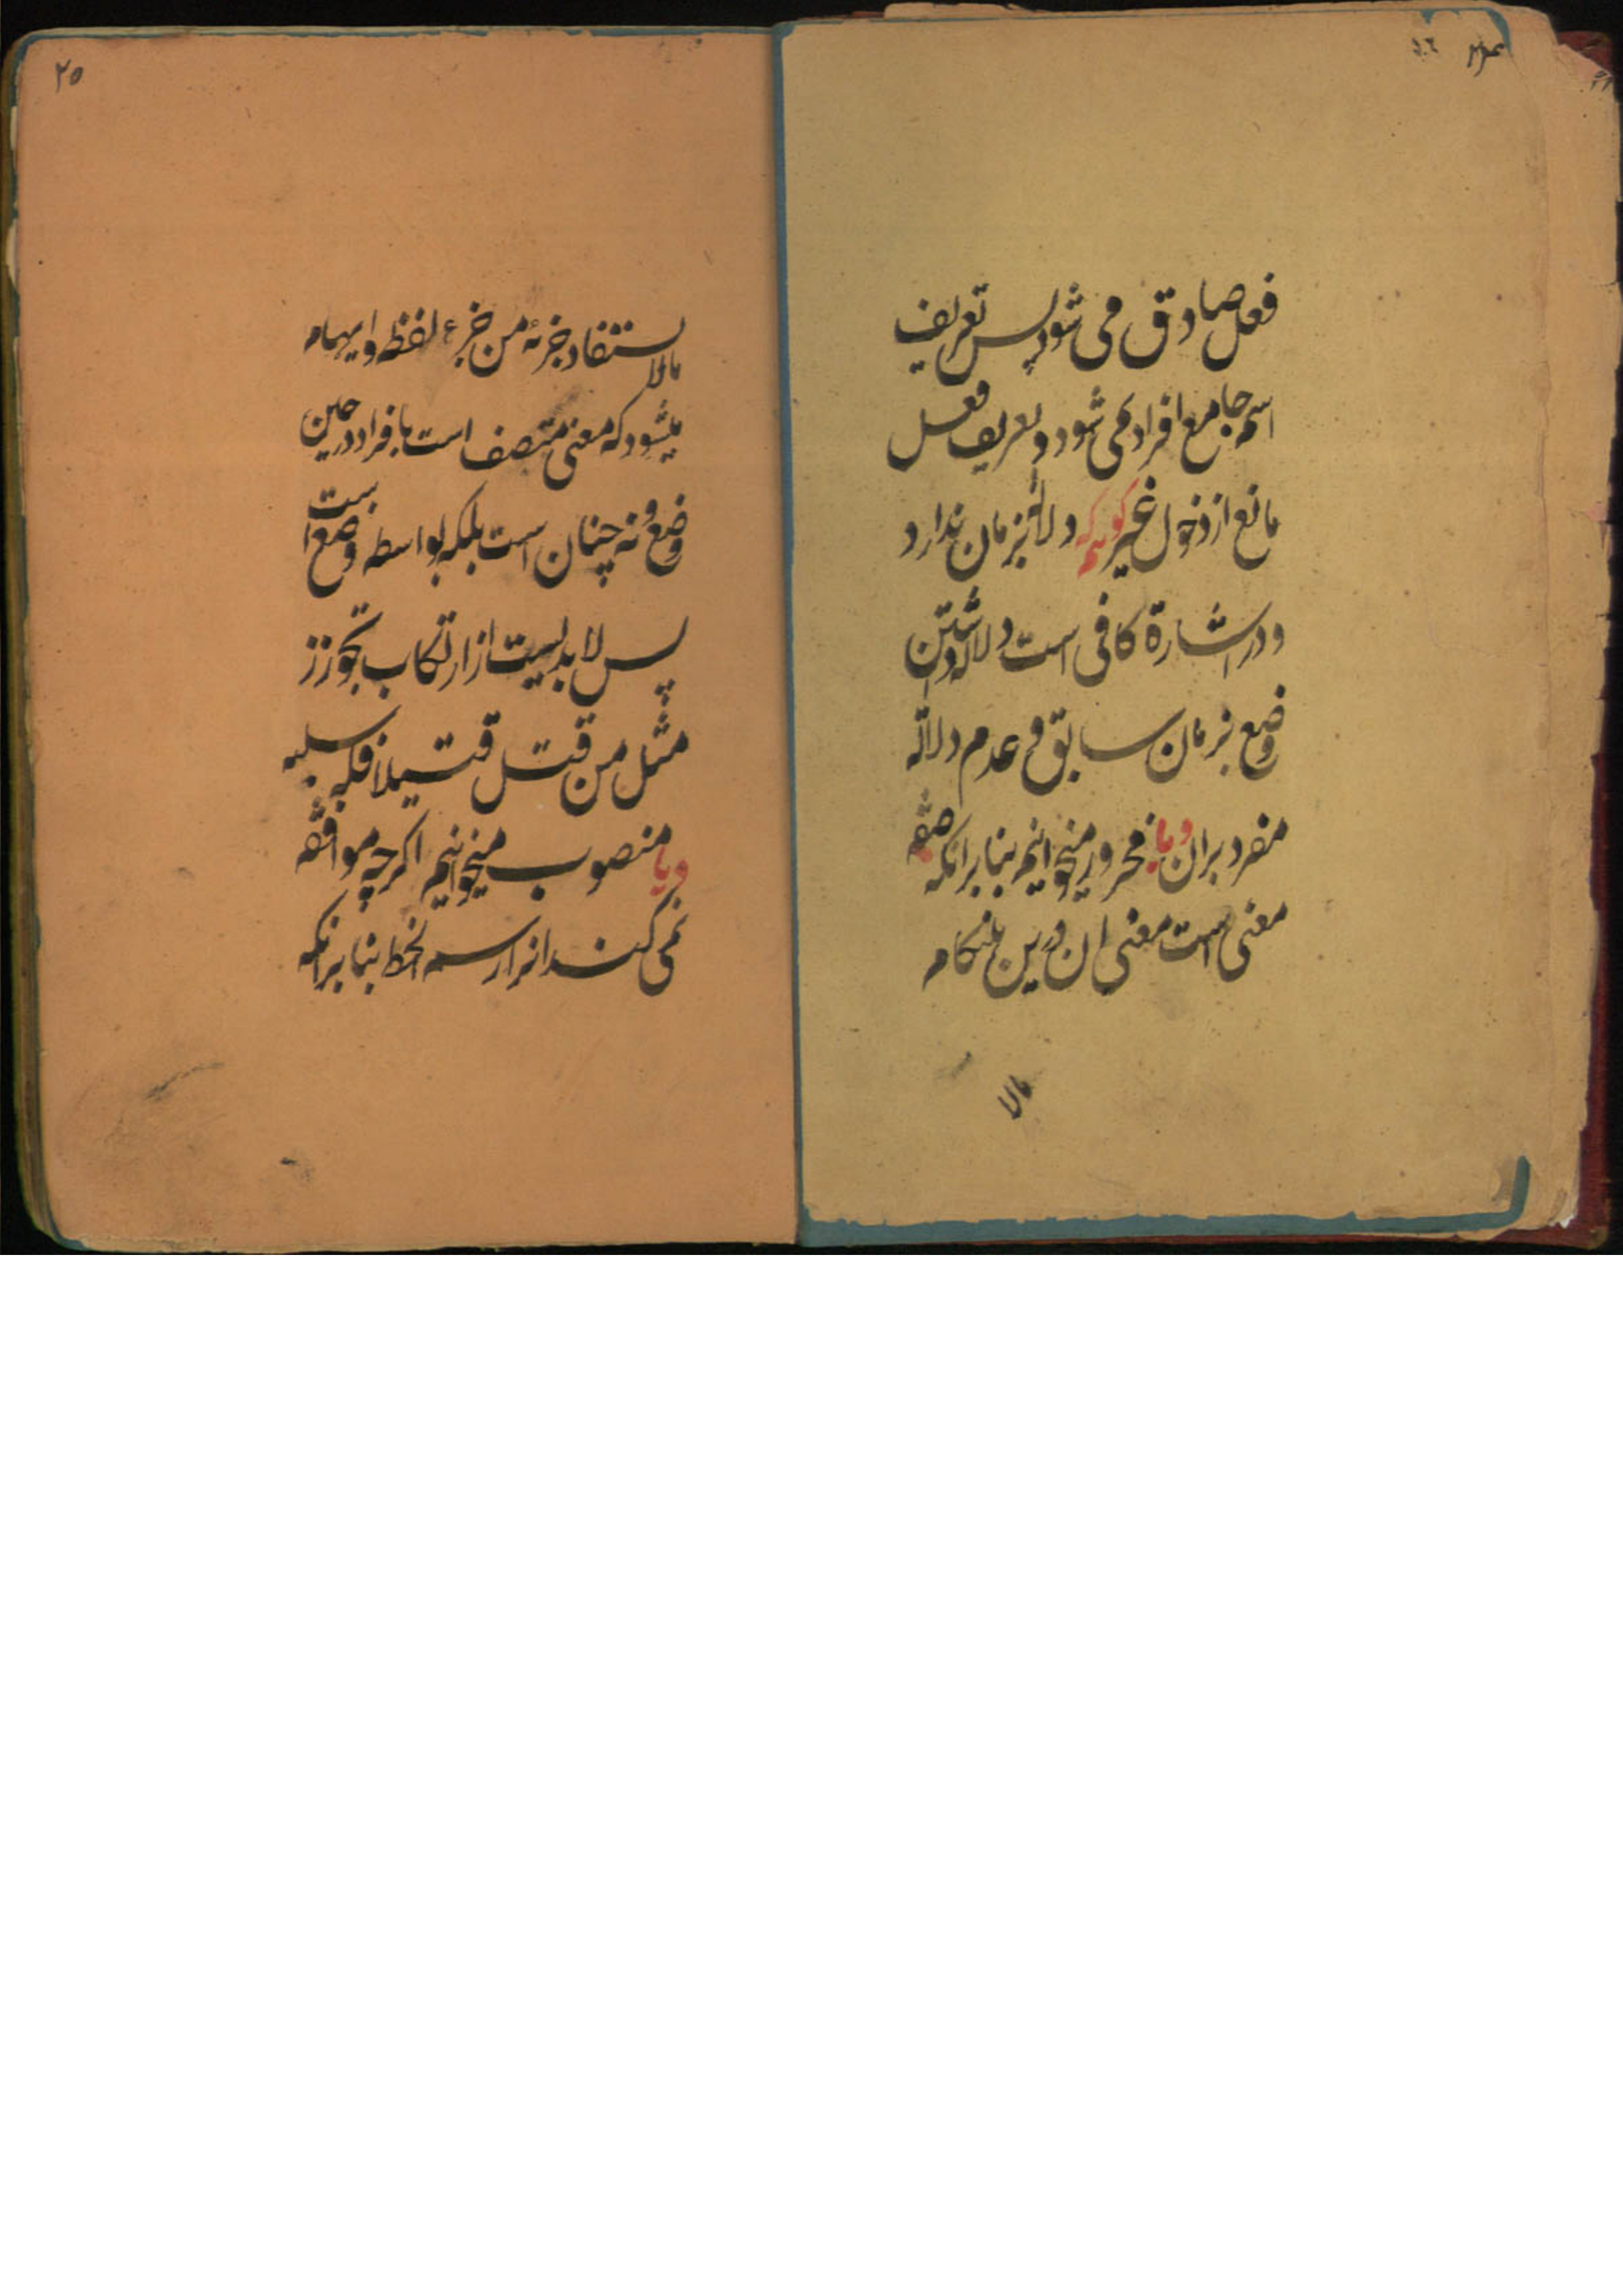 فعل صادق می شود پس تعریف
اسم جامع افراد نمی شود و تعریف فعل
مانع از دخول غیر گویم که دلالة بزمان ندارد
و در اشارة کافی است دلالة داشتن
وضع بزمان سابق و عدم دلالة
مفرد بران و یا مجرور میخوانیم بنا برانکه صفه
معنی است معنی ان درین هنکام
مالا
۲۵
مالا یستفاد جزئه من جزء لفظه و ایهام
میشود که معنی متصف است بافراد در حین
وضع و نه چنان است بلکه بواسطه وضع است
پس لا بدیست از ارتکاب تجوزز
مثل من قتل قتیلا فله سلبه
و یا منصوب میخوانیم اکرچه موافقه
نمی کند انرا رسم الخط بنا برانکه